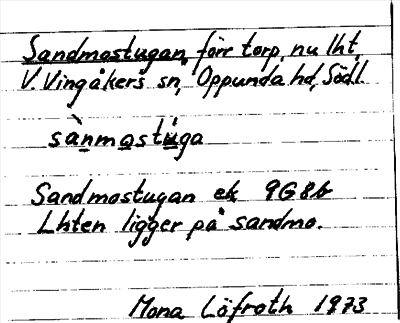 Sandmostugan, förr torp, nu lht,
V. Vingåkers sn, Oppunda hd, Södl
sànmastúga
Sandmostugan ek 9G8b
Lhten ligger på sandmo.
Mona Löfroth 1973